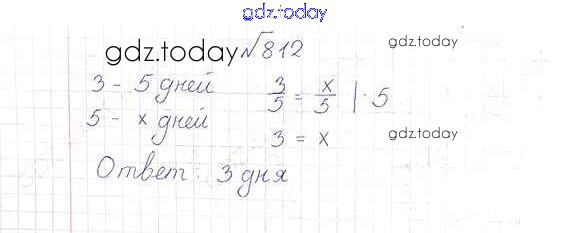 gdz.today
gdz.today №812
gdz.today
3 - 5 дней
5 - x дней
3/5 = x/5 | · 5
3 = x
gdz.today
Ответ: 3 дня